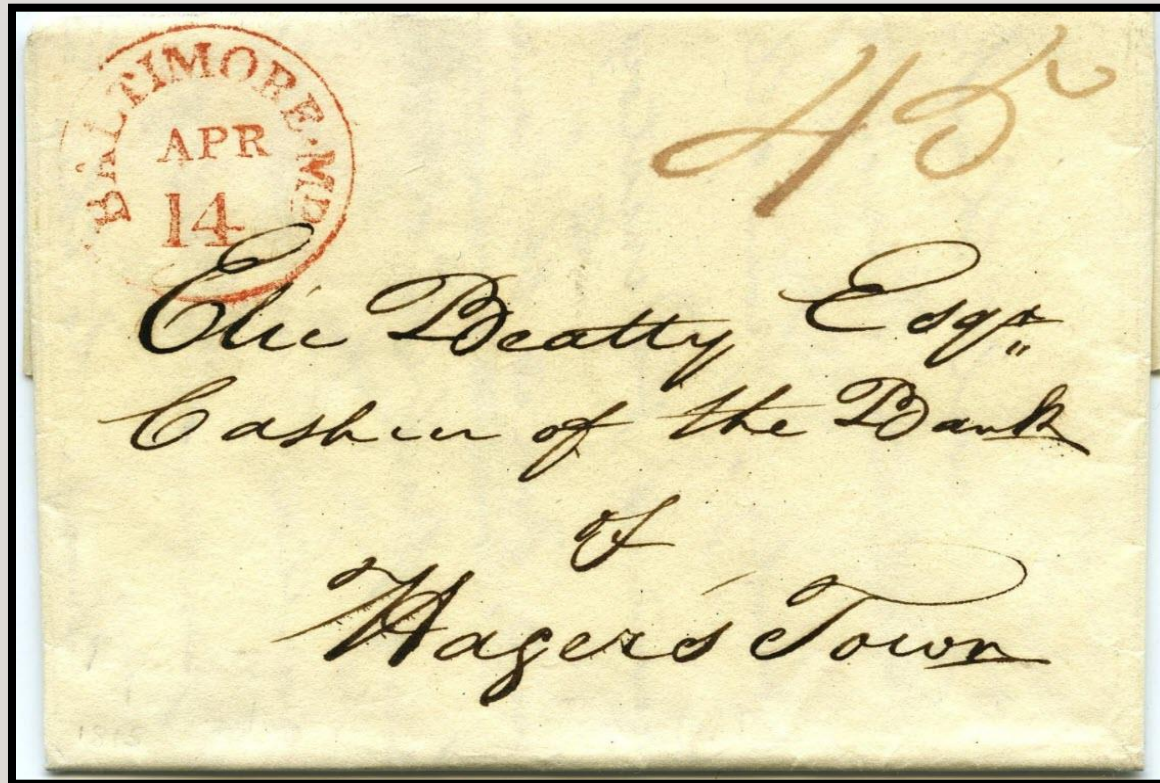 BALTIMORE. MD
APR
14
45
Elie Beatty Esqr
Cashier of the Bank
of
Hager's Town